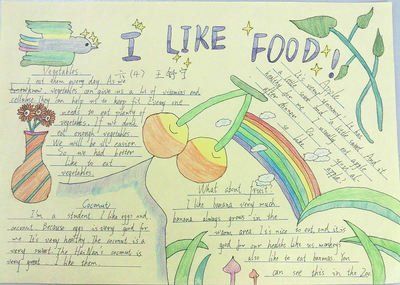 I LIKE FOOD!
Vegetables
六(4) 王
I eat them every day. As we
vegetables can give us a lot of vitamins and
cellulose. They can help us to keep fit. Every one
needs to eat plenty of
vegetables. If we don't
eat enough vegetables.
We will be ill easier.
So we had better
like to eat
vegetables.
Coconut
I'm a student. I like eggs and
coconut. Because eggs is very good for
me. It's very healthy. The coconut is a
very sweet. The HaiNan's coconut is
very great. I like them.
Apple
It's yummy!
and a little sweet. And it
after dinner. I usually eat apple
What about fruit?
I like banana very much.
banana always grows in the
warm area. It's nice to eat, and it is
good for our health. like us, monkeys
also like to eat bananas. You
can see this in the Zoo.